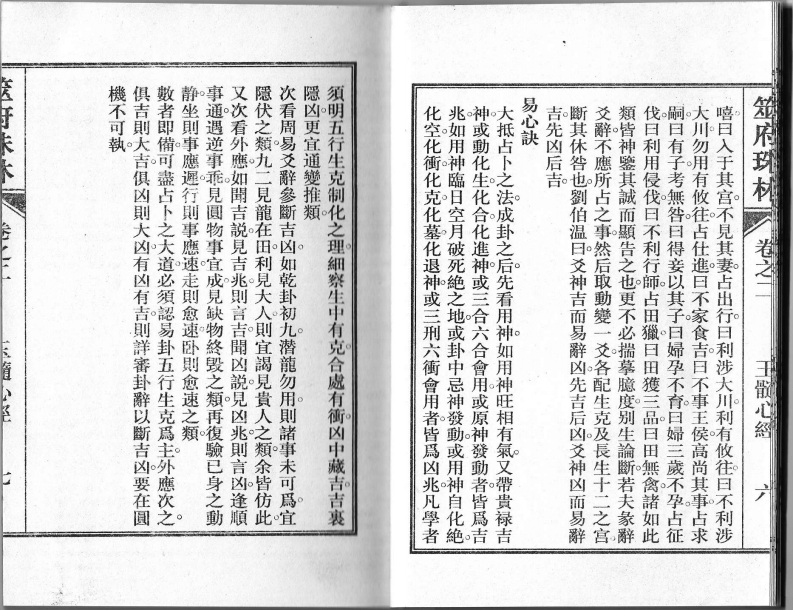 筮府珠林 卷之二 玉髓心經 六
嘻曰入于其宮。不見其妻。占出行曰利涉大川。利有攸往。曰不利涉
大川。勿用有攸往。占仕進曰不家食吉。曰不事王侯。高尚其事。占求
嗣曰有子考無咎。曰得妾以其子。曰婦孕不育。曰婦三歲不孕。占征
伐曰利用侵伐。曰不利行師。占田獵曰田獲三品。曰田無禽。諸如此
類。皆神鑒其誠而顯告之也。更不必揣摹臆度。别生論斷。若夫彖辭
爻辭不應所占之事。然后取動變一爻。各配生克及長生十二之宮。
斷其休咎也。劉伯溫曰。爻神吉而易辭凶。先吉后凶。爻神凶而易辭
吉。先凶后吉。
易心訣
大抵占卜之法。成卦之后。先看用神。如用神旺相有氣。又帶貴禄吉
神。或動化生化合化進神。或三合六合會用。或原神發動者。皆爲吉
兆。如用神臨日空月破死絶之地。或卦中忌神發動。或用神自化絶。
化空化衝化克化墓化退神。或三刑六衝會用者。皆爲凶兆。凡學者
須明五行生克制化之理。細察生中有克。合處有衝。凶中藏吉。吉裏
隱凶。更宜通變推類。
次看周易爻辭參斷吉凶。如乾卦初九潛龍勿用。則諸事未可爲。宜
隱伏之類。九二見龍在田。利見大人。則宜謁見貴人之類。余皆仿此。
又次看外應。如聞吉説見吉兆則言吉。聞凶説見凶兆則言凶。逢順
事通。遇逆事乖。見圓物事宜成。見缺物終毁之類。再復驗已身之動
静。坐則事應遲。行則事應速。走則愈速。卧則愈速之類。
數者即備。可盡占卜之大道。必須認易卦五行生克爲主。外應次之。
俱吉則大吉。俱凶則大凶。有凶有吉。則詳審卦辭以斷吉凶。要在圓
機。不可執。
筮府珠林 卷之二 玉髓心經 七